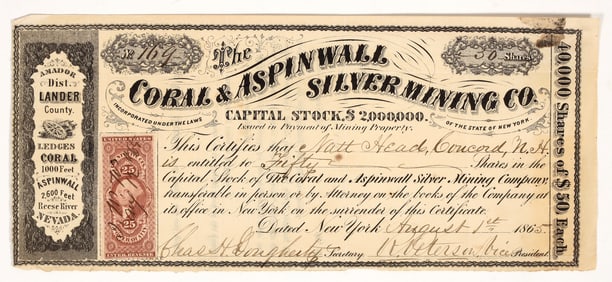 No 169
The
50 Shares
CORAL & ASPINWALL
SILVER MINING CO.
INCORPORATED UNDER THE LAWS
CAPITAL STOCK, $2,000,000.
OF THE STATE OF NEW YORK.
Issued in Payment of Mining Property.
This Certifies that Natt Head, Concord, N.H.
is entitled to Fifty Shares in the
Capital Stock of The Coral and Aspinwall Silver Mining Company,
transferable in person or by Attorney on the books of the Company at
its office in New York on the surrender of this Certificate.
Dated New York August 1st 1865
Chas H. Dougherty Secretary
Peterson Vice President.
AMADOR
Dist.
LANDER
County.
LEDGES
CORAL
1000 Feet
ASPINWALL
2,600 Feet
Reese River
NEVADA.
25
25
25
INTER. REVENUE
40,000 Shares of $50, Each.